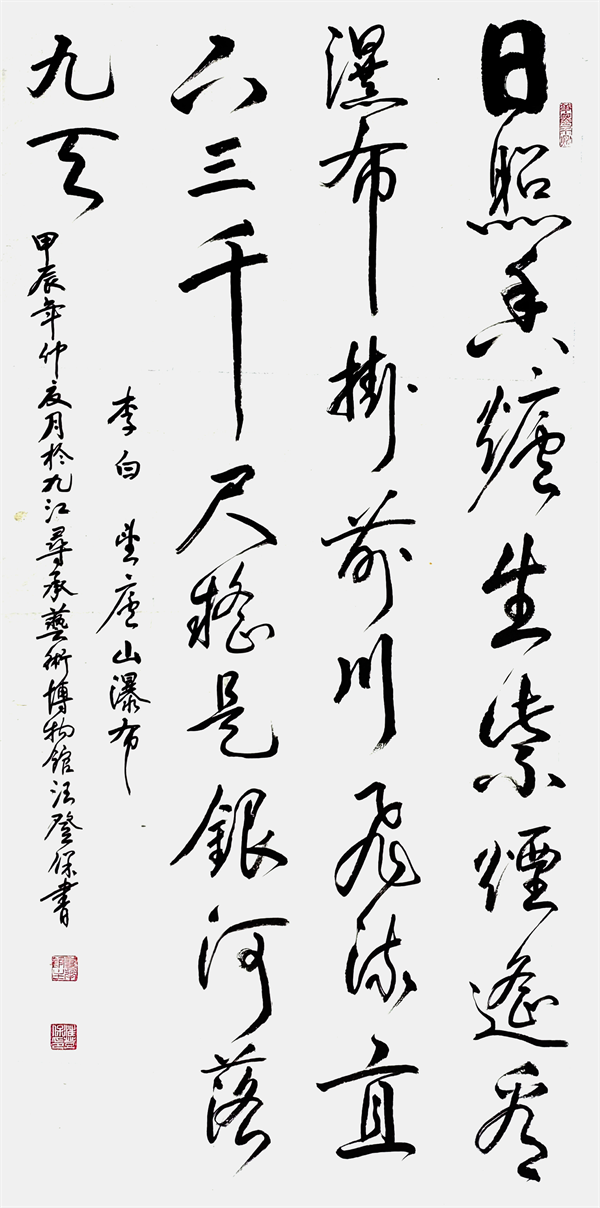 日照香爐生紫煙遙看
瀑布掛前川飛流直
下三千尺疑是銀河落
九天
李白 望廬山瀑布
甲辰年仲夏月於九江尋承藝術博物館汪登保書